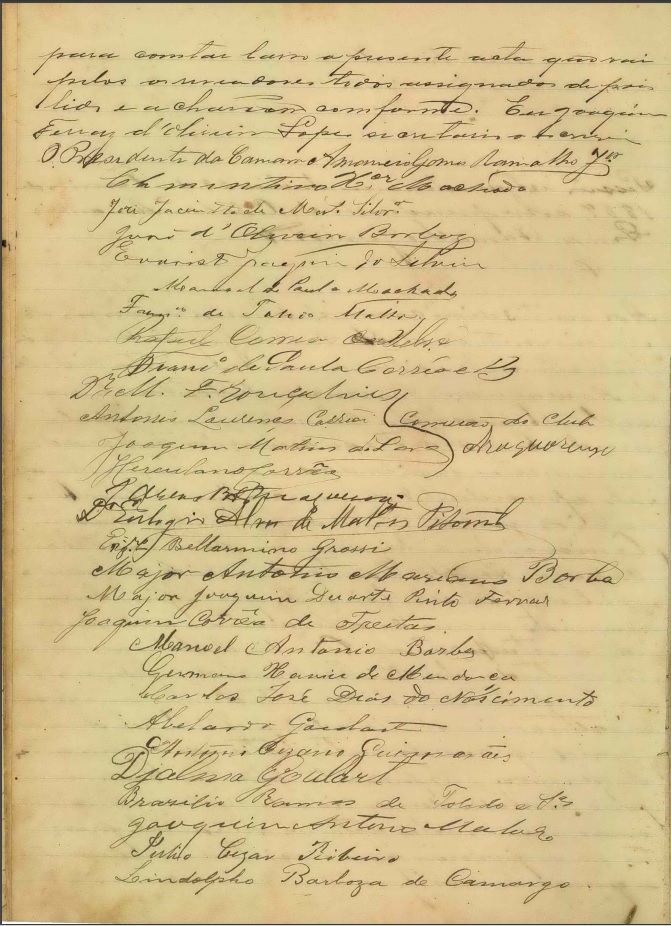 para constar lavro a presente acta que vai
pelos vereadores todos assignados depois
lida e acharem conforme. Eu Joaquim
Ferraz d'Oliveira Lopes secretario o escrevi
O Presidente da Camara Gomes Ramalho Jor
Clementino Xer Machado
José Jacintho de
José d'Oliveira Barboza
Evaristo Joaquim da Silva
Manoel de Paula Machado
de Mattos
Rafael Correa
Franco de Paula Corrêa e
Dr M. F. Gonçalves
Antonio Lourenço Corrêa Comissão do Club
Joaquim Martins de Lara Araguarense
Herculano Corrêa
Dr Eulogio de Mattos Pitombo
Bellarmino Grossi
Major Antonio Mariano Borba
Major Joaquim Duarte Pinto Ferraz
Joaquim Corrêa de Freitas
Manoel Antonio Barboza
Germano Xavier de Mendonça
Carlos José Dias do Nascimento
Abelardo Goulart
Antonio Cezario Guimarães
Djalma Goulart
Brazilio Ramos de Toledo e Sa
Joaquim Antonio
Julio Cezar Ribeiro
Lindolpho Barboza de Camargo.